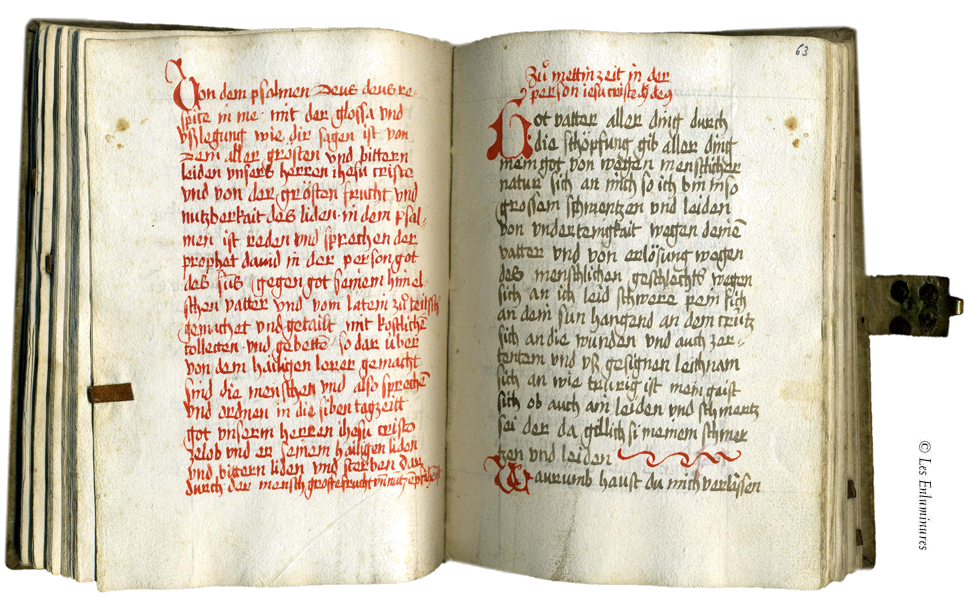 Von dem psalmen Deus deus re-
spice in me mit der glossa vnd
vßlegung wie dir sagen ist von
Dem aller grösten vnd bittern
leiden vnsers herren ihesu cristo
vnd von der grösten frucht vnd
nutzberkait des liden in dem psal-
men ist reden vnd sprechen der
prophet dauid in der person got
des suns gegen got seinem himel
schen vatter vnd vom latein zu teutsch
gemachet vnd getailt mit kostliche
collecten vnd gebette so dar über
von dem hailigen lerer gemacht
sind die menschen vnd also spreche
vnd ordnen in die siben tagzeitt
got vnserm herren ihesu cristo
zelob vnd er seinem hailigen liden
vnd bittern liden vnd sterben Dar
durch der mensch groste frucht
63
Zu mettinzeit in der
person iesu
Got vatter aller ding durch
die schöpfung gib aller ding
mein got von wegen menschlicher
natur sich an mich so ich bin in so
grossem schmertzen vnd leiden
von vndertenigkait wegen deine
vatter vnd von erlösung wegen
des menschlichen geschlechts wegen
sich an ich leid schwere pein sich
an dem sun hangend an dem crütz
sich an die wunden vnd auch zer-
tentem vnd vß gesignen leichnam
sich an wie trurig ist mein gaist
sich ob auch ain leiden vnd schmertz
sei der da gillich si meinem schmer
tzen vnd leiden
Waurumb haust du mich verlässen
© Les Enluminures